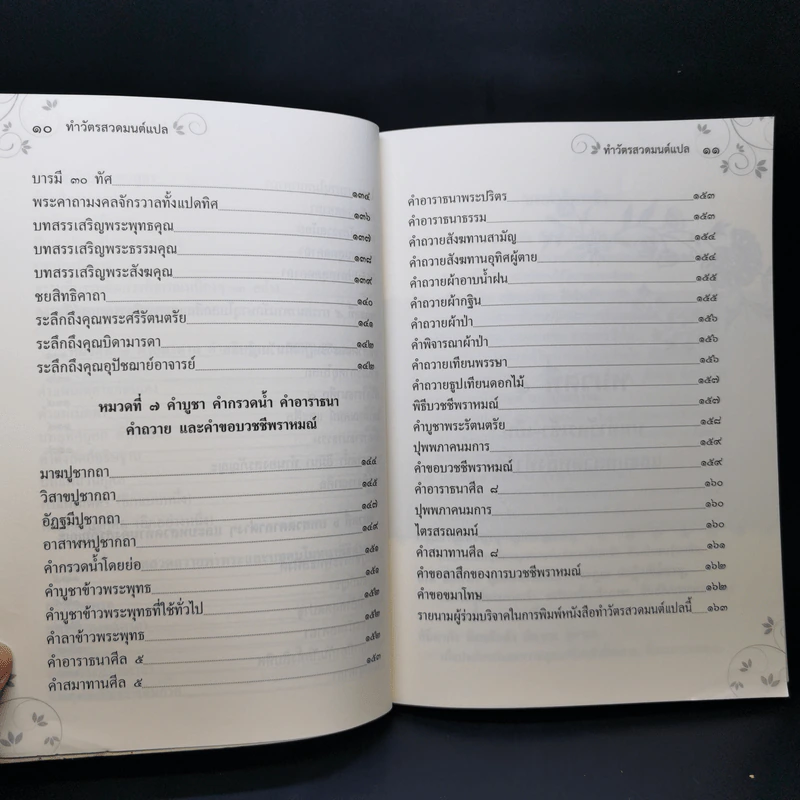 ๑๐ ทำวัตรสวดมนต์แปล
บารมี ๓๐ ทัศ ๑๓๔
พระคาถามงคลจักรวาลทั้งแปดทิศ ๑๓๖
บทสรรเสริญพระพุทธคุณ ๑๓๗
บทสรรเสริญพระธรรมคุณ ๑๓๘
บทสรรเสริญพระสังฆคุณ ๑๓๙
ชยสิทธิคาถา ๑๔๐
ระลึกถึงคุณพระศรีรัตนตรัย ๑๔๑
ระลึกถึงคุณบิดามารดา ๑๔๒
ระลึกถึงคุณอุปัชฌาย์อาจารย์ ๑๔๒
หมวดที่ ๗ คำบูชา คำกรวดน้ำ คำอาราธนา
คำถวาย และคำขอบวชชีพราหมณ์
มาฆปูชากถา ๑๔๔
วิสาขปูชากถา ๑๔๕
อัฏฐมีปูชากถา ๑๔๗
อาสาฬหปูชากถา ๑๔๙
คำกรวดน้ำโดยย่อ ๑๕๑
คำบูชาข้าวพระพุทธ ๑๕๑
คำบูชาข้าวพระพุทธที่ใช้ทั่วไป ๑๕๒
คำลาข้าวพระพุทธ ๑๕๒
คำอาราธนาศีล ๕ ๑๕๒
คำสมาทานศีล ๕ ๑๕๓
ทำวัตรสวดมนต์แปล ๑๑
คำอาราธนาพระปริตร ๑๕๓
คำอาราธนาธรรม ๑๕๓
คำถวายสังฆทานสามัญ ๑๕๔
คำถวายสังฆทานอุทิศผู้ตาย ๑๕๔
คำถวายผ้าอาบน้ำฝน ๑๕๕
คำถวายผ้ากฐิน ๑๕๕
คำถวายผ้าป่า ๑๕๖
คำพิจารณาผ้าป่า ๑๕๖
คำถวายเทียนพรรษา ๑๕๖
คำถวายธูปเทียนดอกไม้ ๑๕๗
พิธีบวชชีพราหมณ์ ๑๕๗
คำบูชาพระรัตนตรัย ๑๕๘
ปุพพภาคนมการ ๑๕๙
คำขอบวชชีพราหมณ์ ๑๕๙
คำอาราธนาศีล ๘ ๑๖๐
ปุพพภาคนมการ ๑๖๐
ไตรสรณคมน์ ๑๖๐
คำสมาทานศีล ๘ ๑๖๑
คำขอลาสิกของการบวชชีพราหมณ์ ๑๖๒
คำขอขมาโทษ ๑๖๒
รายนามผู้ร่วมบริจาคในการพิมพ์หนังสือทำวัตรสวดมนต์แปลนี้ ๑๖๓